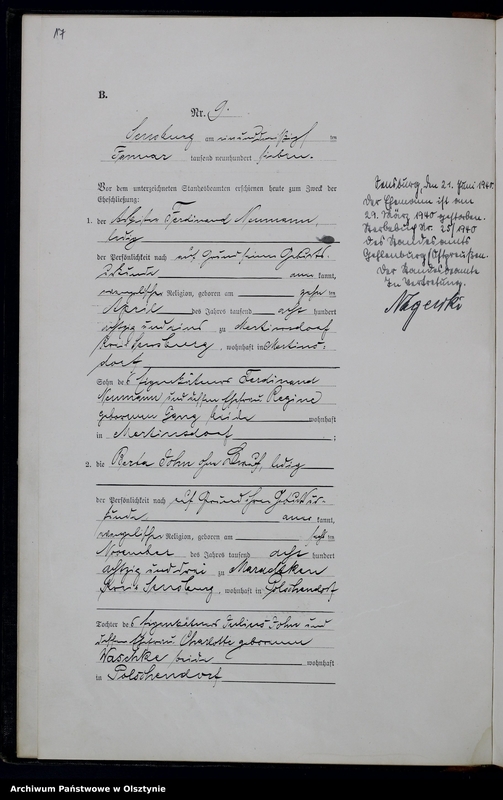 17
B.
Nr. 9.
Sensburg am einunddreißigsten
Januar tausend neunhundert sieben.
Vor dem unterzeichneten Standesbeamten erschienen heute zum Zweck der
Eheschließung:
1. der Ferdinand Neumann,
ledig
der Persönlichkeit nach auf Grund seiner Geburts-
urkunde anerkannt,
evangelischer Religion, geboren am zehnten
April des Jahres tausend acht hundert
achtzig und eins zu Martinsdorf
Kreis Sensburg, wohnhaft in Martins-
dorf
Sohn des Eigentümers Ferdinand
Neumann und dessen Ehefrau Regine
geborenen beide wohnhaft
in Martinsdorf ;
2. die Berta John ohne Beruf, ledig
der Persönlichkeit nach auf Grund ihrer Geburtsur-
kunde anerkannt,
evangelischer Religion, geboren am
November des Jahres tausend acht hundert
achtzig und drei zu
Kreis Sensburg, wohnhaft in Polschendorf
Tochter des Eigentümers Julius John und
dessen Ehefrau Charlotte geborenen
Waschke beide wohnhaft
in Polschendorf
Sensburg, den 21. Juni 1940.
Der Ehemann ist am
29. März 1940 gestorben.
Sterbebuch Nr. 25/1940
des Standesamts
Gehlenburg/Ostpreußen.
Der Standesbeamte
In Vertretung.
Nagerski
Archiwum Państwowe w Olsztynie